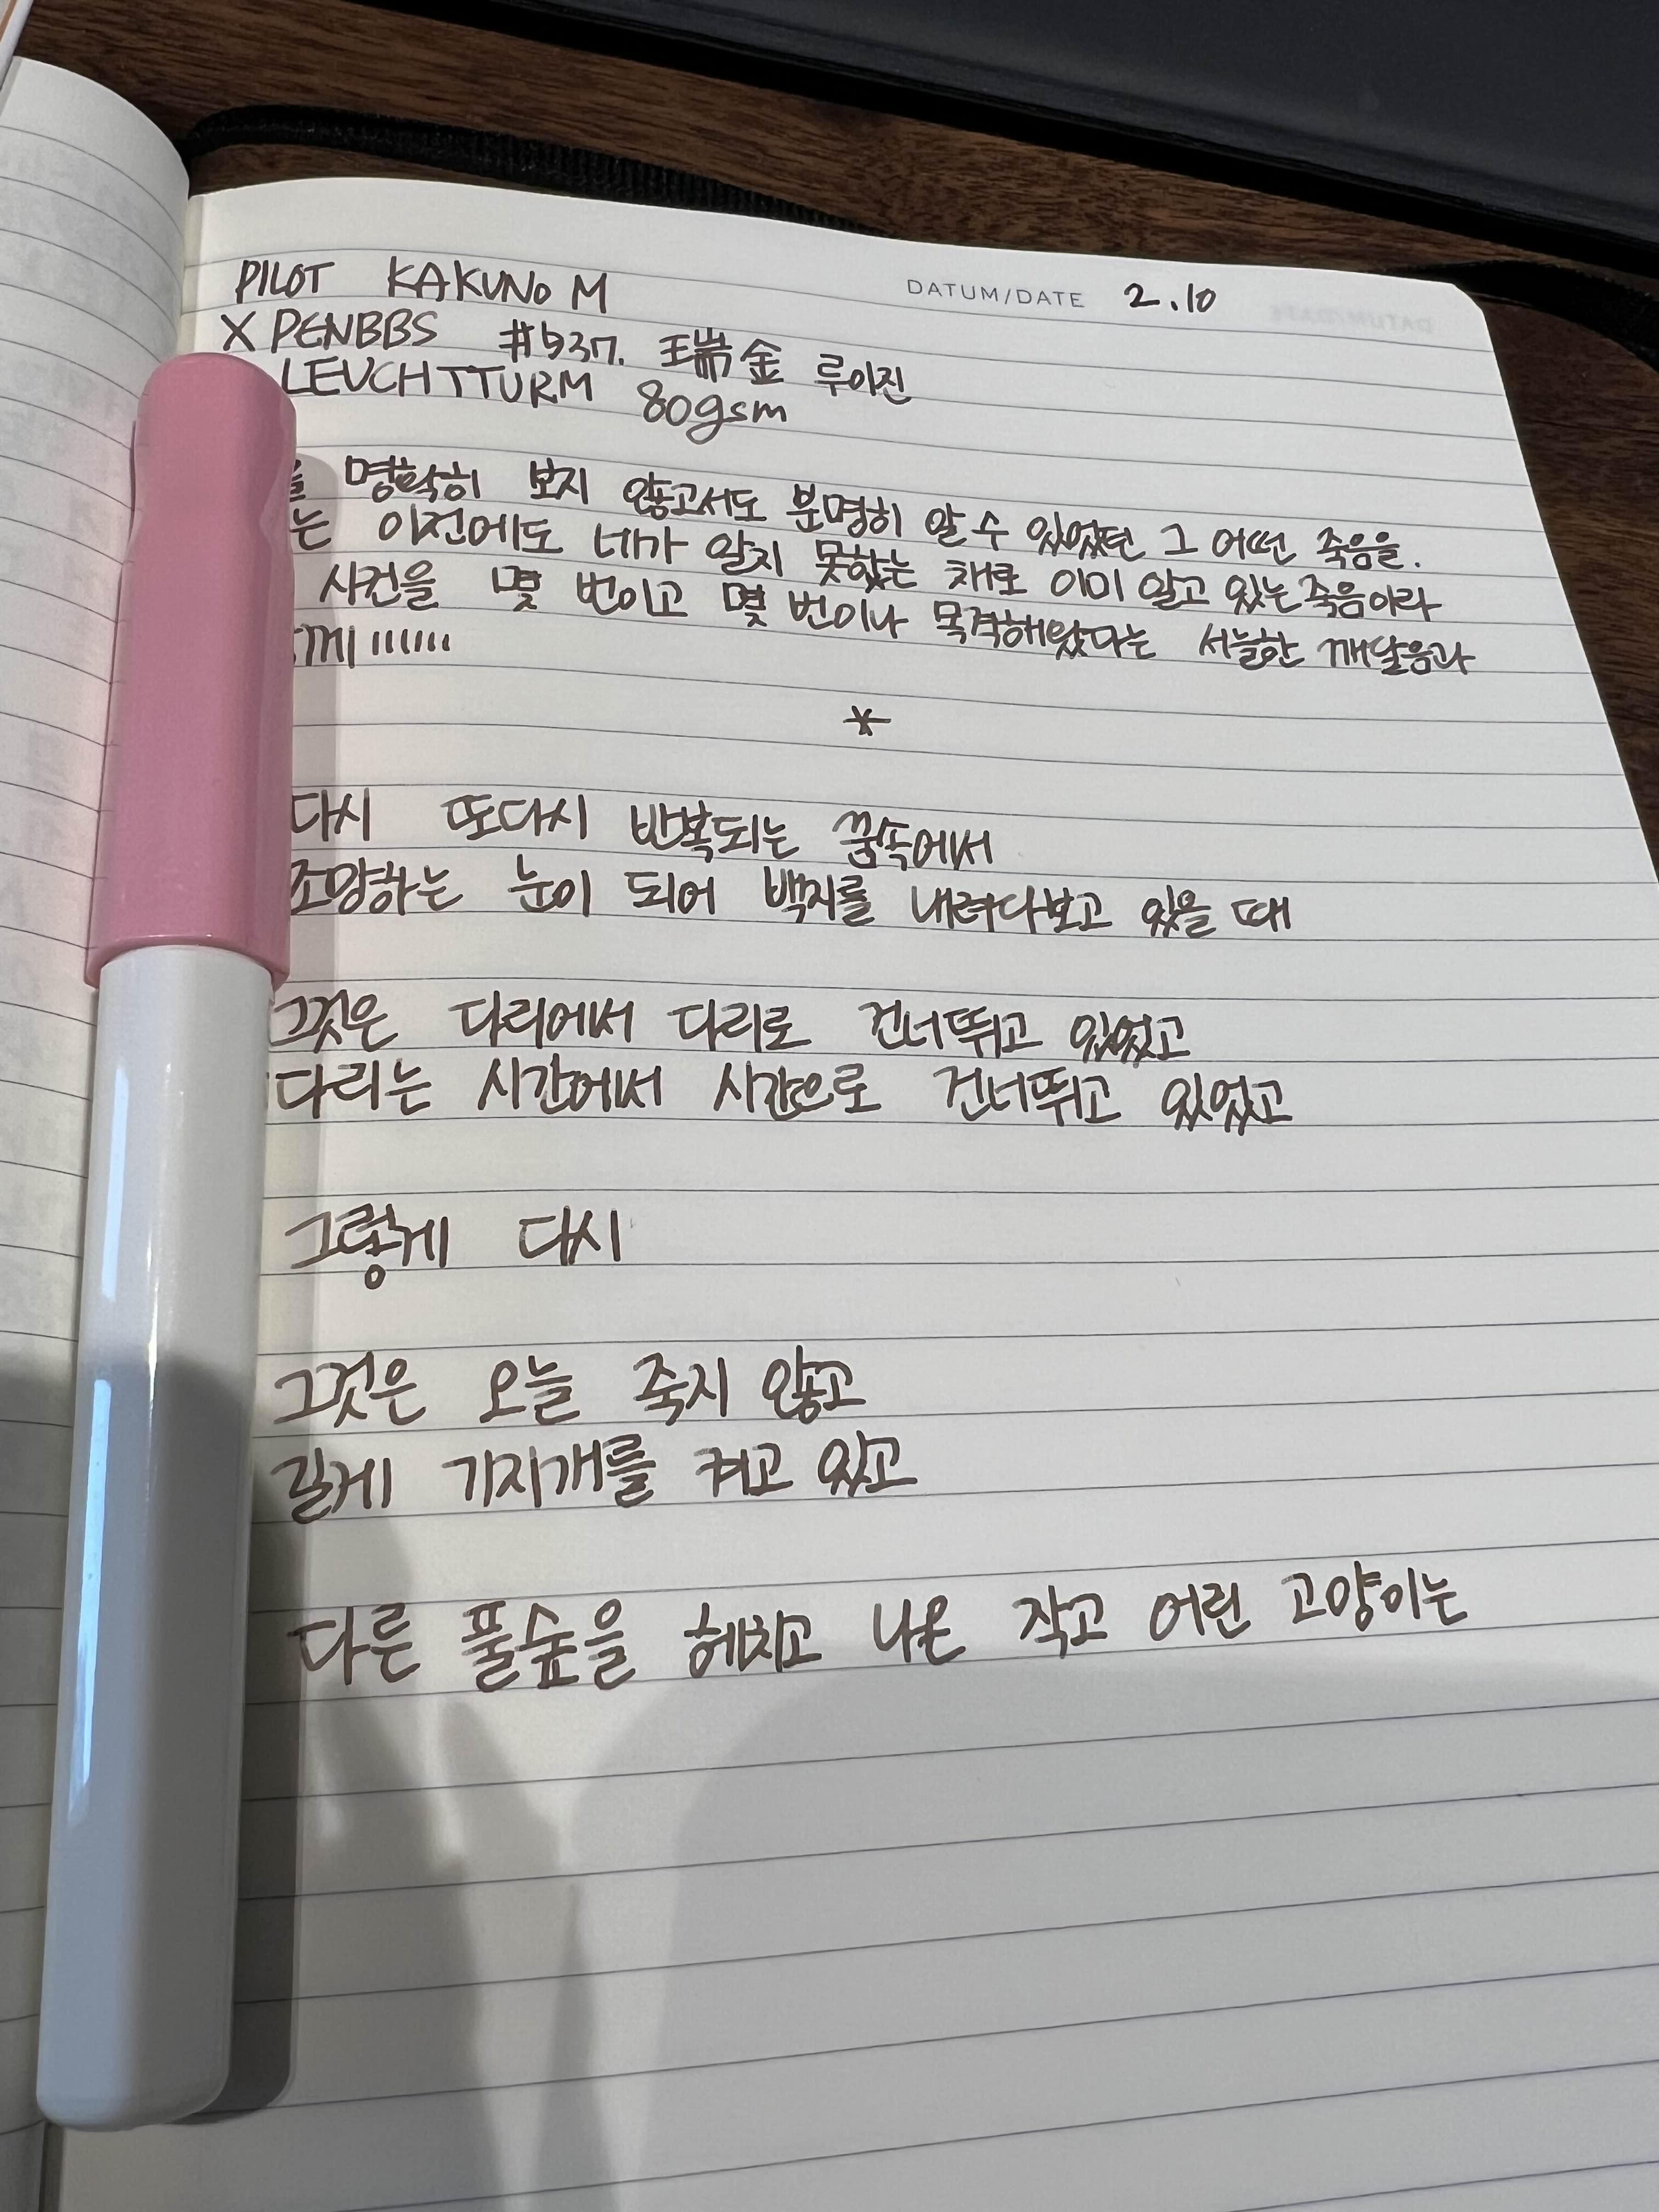 DATUM/DATE 2.10
PILOT KAKUNO M
X PENBBS #537. 瑞金 루이진
LEUCHTTURM 80gsm
을 명확히 보지 않고서도 분명히 알 수 있었던 그 어떤 죽음을.
는 이전에도 네가 알지 못했는 채로 이미 알고 있는 죽음이라
사건을 몇 번이고 몇 번이나 목격해왔다는 서늘한 깨달음과
께 ......
*
다시 또다시 반복되는 꿈속에서
조망하는 눈이 되어 백지를 내려다보고 있을 때
그것은 다리에서 다리로 건너뛰고 있었고
다리는 시간에서 시간으로 건너뛰고 있었고
그렇게 다시
그것은 오늘 죽지 않고
길게 기지개를 켜고 있고
다른 풀숲을 헤치고 나온 작고 어린 고양이는